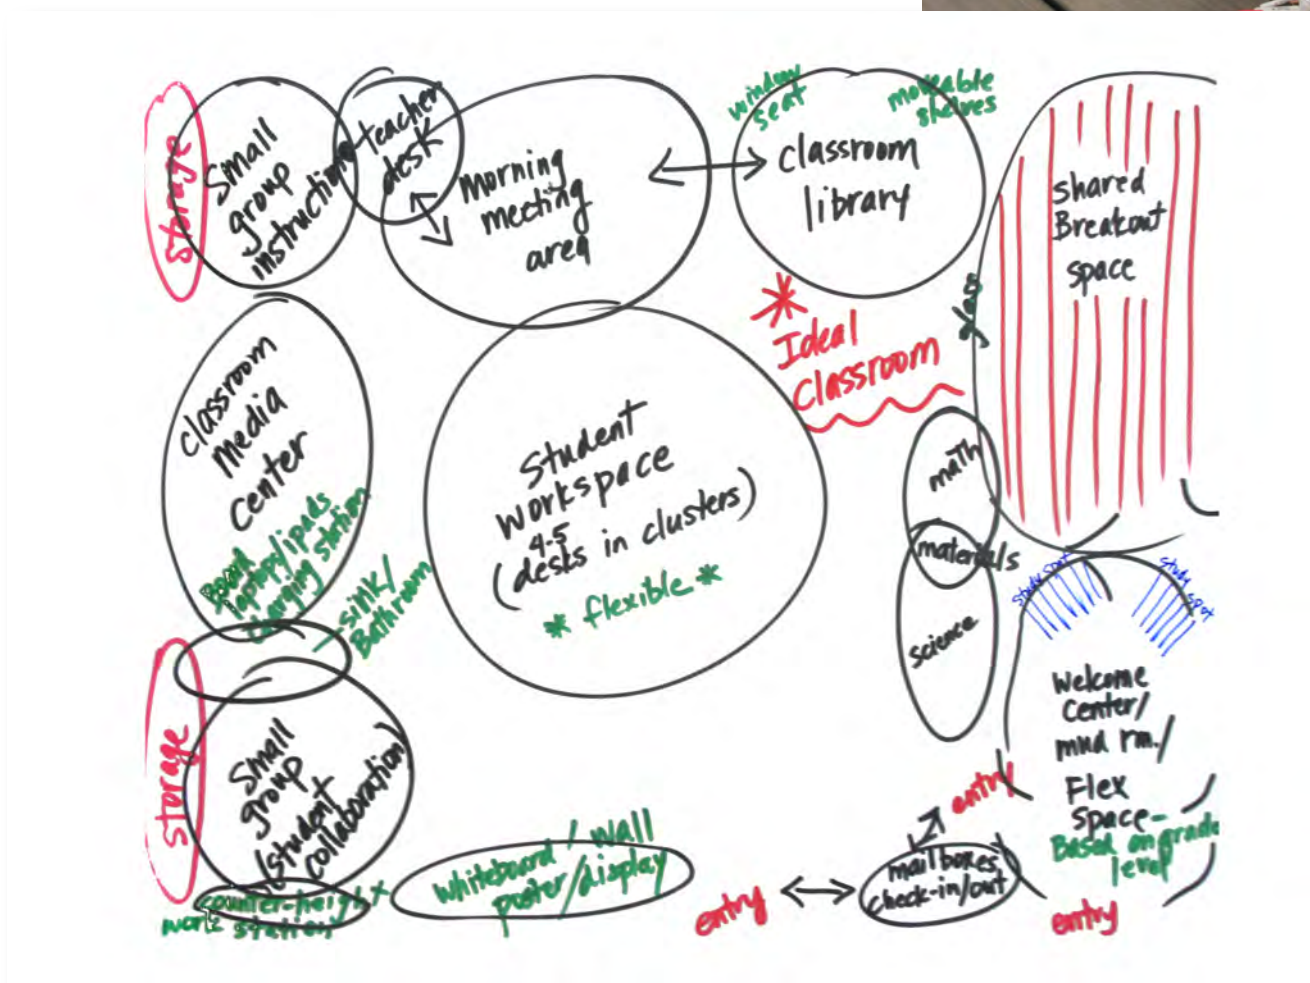 storage
Small
group
instruction
teacher
desk
Morning
meeting
area
window
seat
moveable
shelves
classroom
library
shared
Breakout
space
glass
Ideal
Classroom
classroom
media
center
Board
laptops/ipads
charging station
sink/
Bathroom
Student
workspace
4-5
(desks in clusters)
* flexible *
math
materials
science
study spot
study spot
Welcome
center/
mud rm./
Flex
space-
Based on grade
level
entry
storage
small
group
(student
collaboration)
counter-height
work station
whiteboard / wall
poster/display
entry
mailboxes
check-in/out
entry